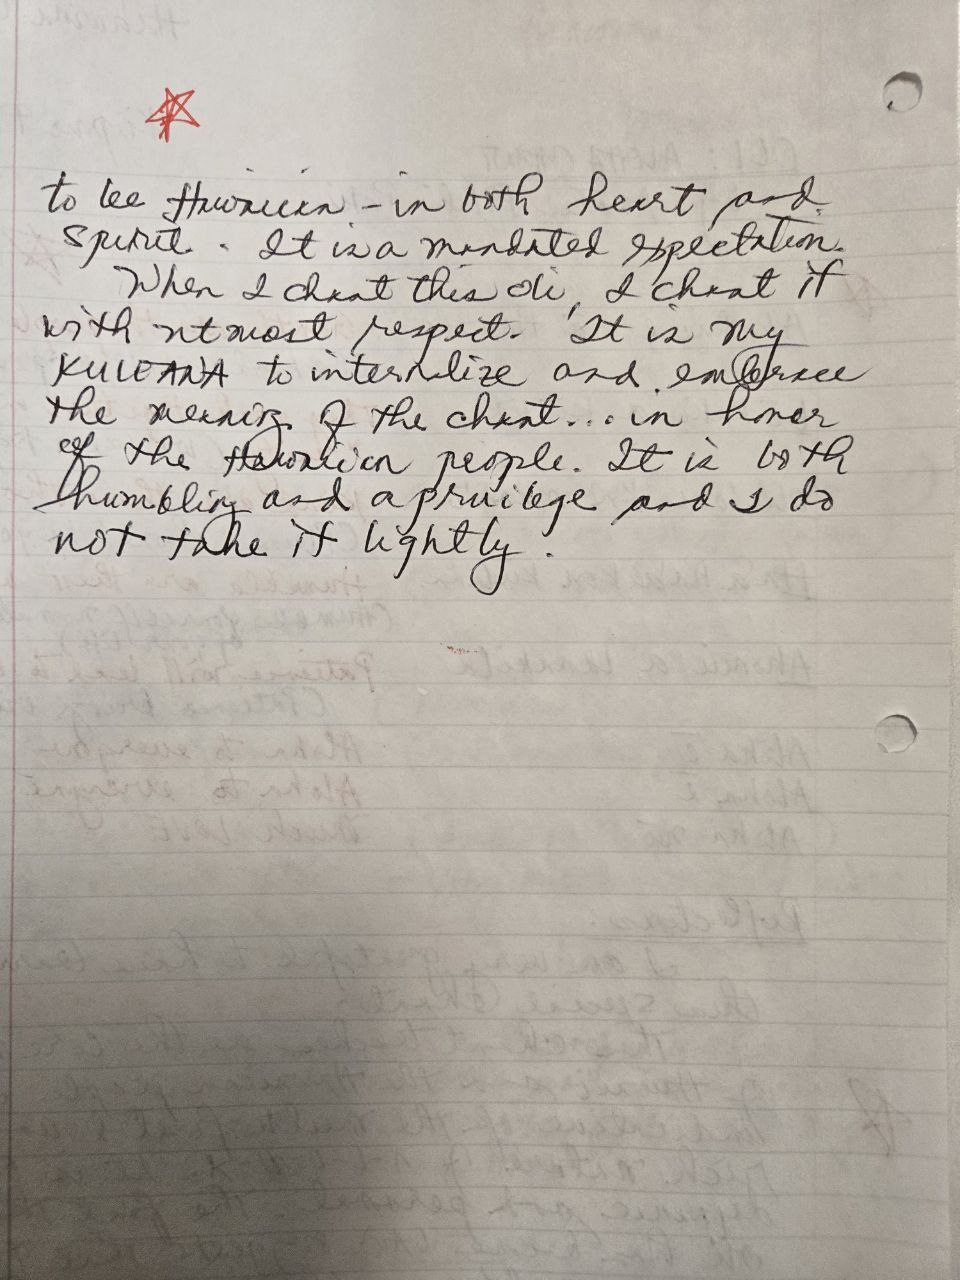 to be Hawaiian - in both heart and
spirit. It is a mandated expectation.
When I chant this oli, I chant it
with utmost respect. It is my
KULEANA to internalize and embrace
the meaning of the chant... in honor
of the Hawaiian people. It is both
humbling and a privilege and I do
not take it lightly.